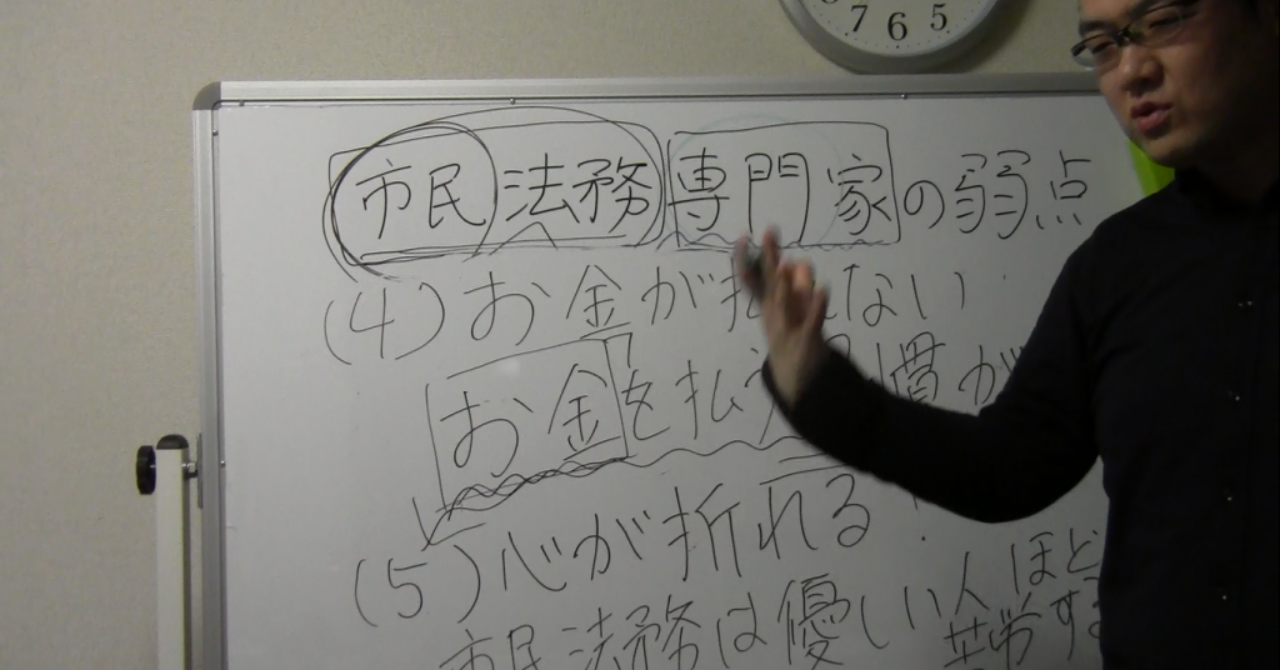 7 6 5
市民法務専門家の弱点
(4)お金が払 ない
お金を払う 慣が
(5)心が折れる
市民法務は優しい人ほど
苦労す